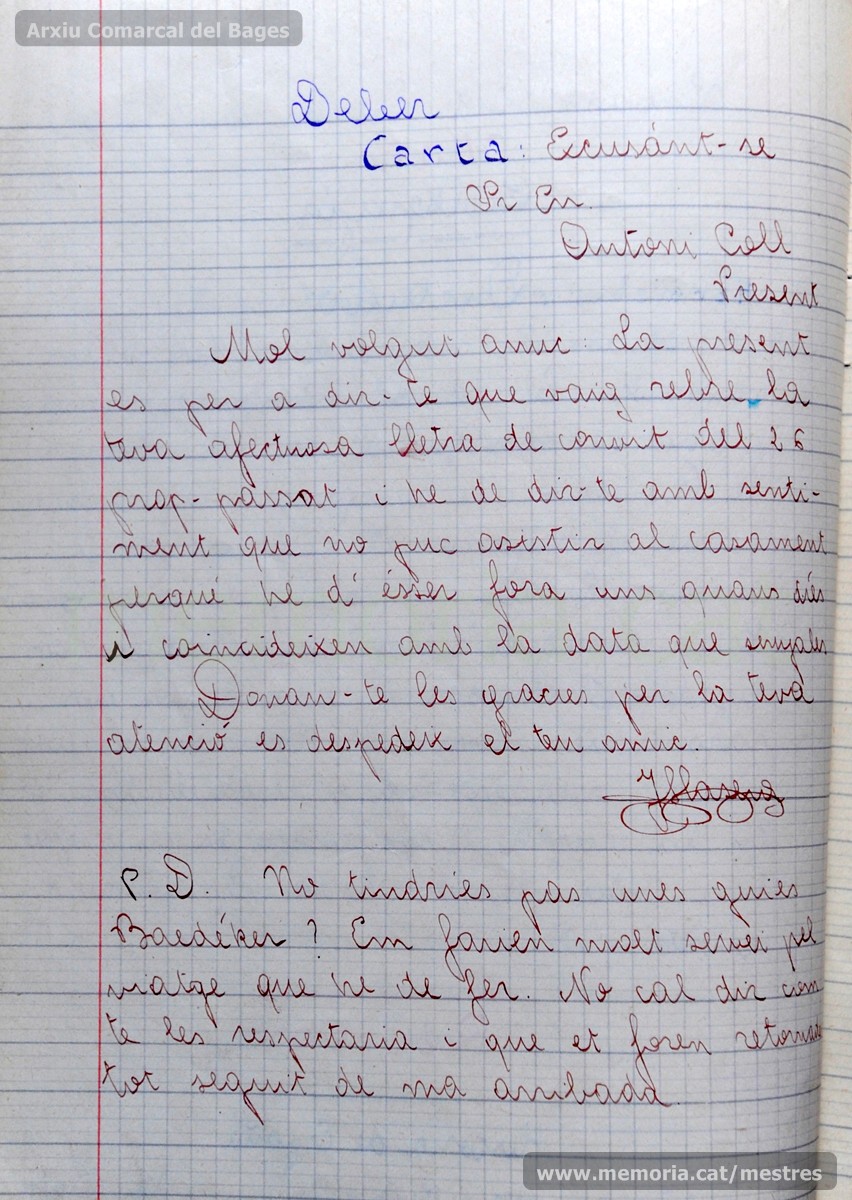 Arxiu Comarcal del Bages
Deber
Carta: Excusánt-se
Sr En.
Antoni Coll
Present
Mol volgut amic: La present
es per a dir-te que vaig rebre la
teva afectuosa lletra de convit del 26
prop-passat i he de dir-te amb senti-
ment que no puc asistir al casament
perqué he d'ésser fora uns quans díes
i coincideixen amb la data que senyales
Donan-te les gracies per la teva
atenció es despedeix el teu amic.
P.D. No tindríes pas unes guies
Baedéker? Em farien molt servei pel
viatge que he de fer. No cal dir com
te les respectaria i que et foren retornades
tot seguit de ma arribada.
www.memoria.cat/mestres